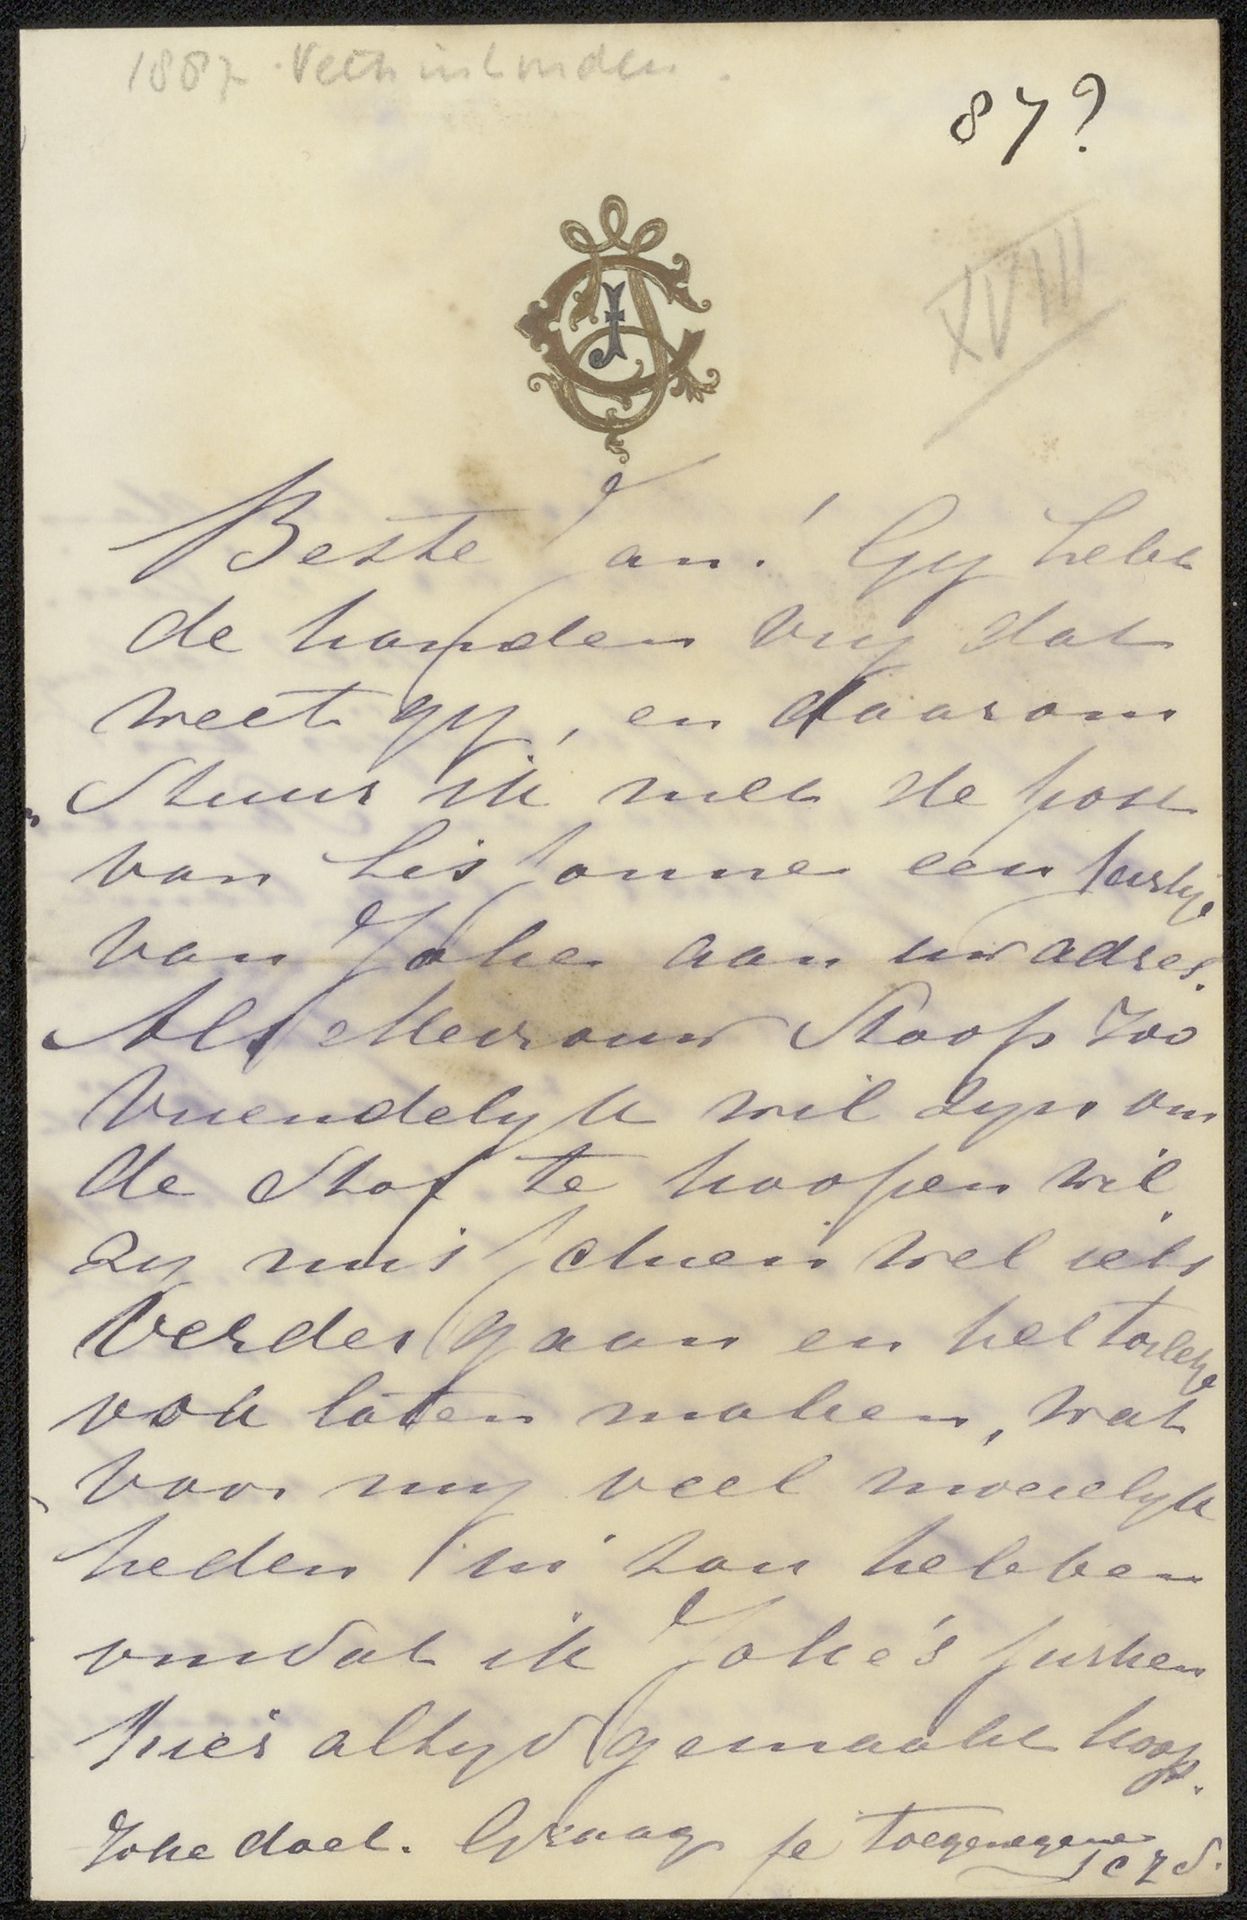 1887. Veth in Londen.
87?
XVIII
Beste Jan! Gij hebt
de handen vrij dat
weet gij, en daarom
Stuur ik met de post
van his jonne een jurkje
van Joke aan uw adres.
Als Mevrouw Stoop zoo
vriendelijk wil zijn om
de Stof te koopen wil
zij misschien wel iets
verder gaan en het toiletje
ook laten maken, wat
voor mij veel moeielijk
heden in zou hebben
omdat ik Joke's jurken
hier altijd gemaakt koop.
Joke doet. Graag je toegenegene